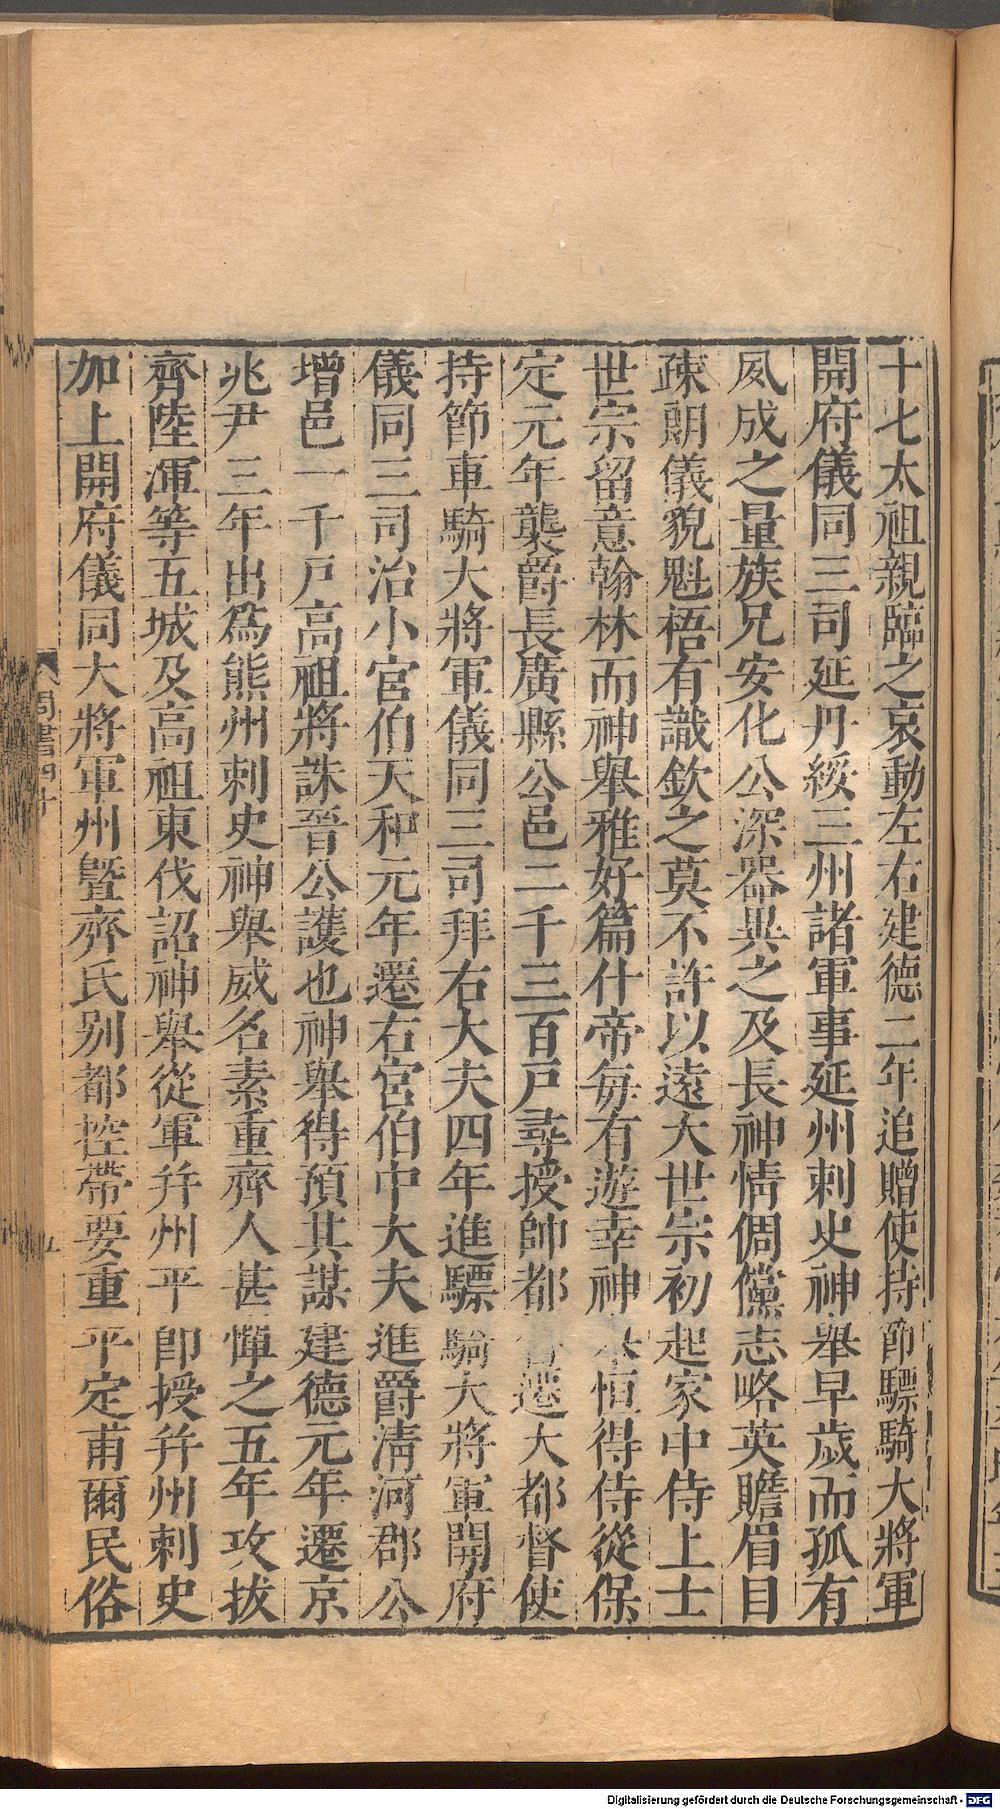 十七太祖親臨之哀動左右建德二年追贈使持節驃騎大將軍
開府儀同三司延丹綏三州諸軍事延州刺史神舉早歲而孤有
夙成之量族兄安化公深器異之及長神情倜儻志略英贍眉目
疎朗儀貌魁梧有識欽之莫不許以遠大世宗初起家中侍上士
世宗留意翰林而神舉雅好篇什帝每有遊幸神 恒得侍從保
定元年襲爵長廣縣公邑二千三百戶尋授帥都 遷大都督使
持節車騎大將軍儀同三司拜右大夫四年進驃騎大將軍開府
儀同三司治小宮伯天和元年遷右宮伯中大夫進爵清河郡公
增邑一千戶高祖將誅晉公護也神舉得預其謀建德元年遷京
兆尹三年出爲熊州刺史神舉威名素重齊人甚憚之五年攻拔
齊陸渾等五城及高祖東伐詔神舉從軍幷州平卽授幷州刺史
加上開府儀同大將軍州曁齊氏别都控帶要重平定甫爾民俗
周書四十
五
Digitalisierung gefördert durch die Deutsche Forschungsgemeinschaft - DFG